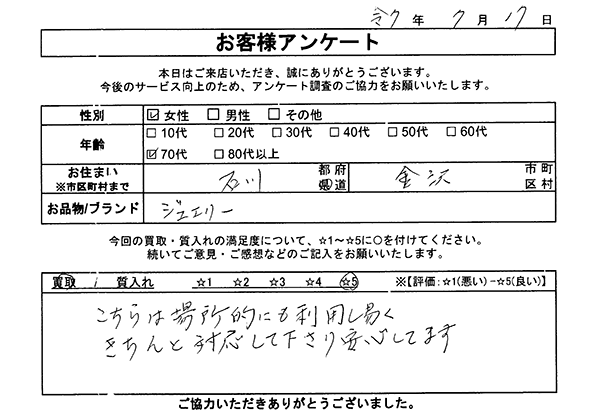 令7年 7月 17日
お客様アンケート
本日はご来店いただき、誠にありがとうございます。
今後のサービス向上のため、アンケート調査のご協力をお願いいたします。
性別 ☑女性 □男性 □その他
年齢 □10代 □20代 □30代 □40代 □50代 □60代
☑70代 □80代以上
お住まい ※市区町村まで 石川 都府県道 金沢 市町区村
お品物/ブランド ジュエリー
今回の買取・質入れの満足度について、☆1～☆5に○を付けてください。
続いてご意見・ご感想などのご記入をお願いいたします。
買取 / 質入れ ☆1 ☆2 ☆3 ☆4 ☆5 ※【評価:☆1(悪い)-☆5(良い)】
こちらは場所的にも利用し易く
きちんと対応して下さり安心してます
ご協力いただきありがとうございました。